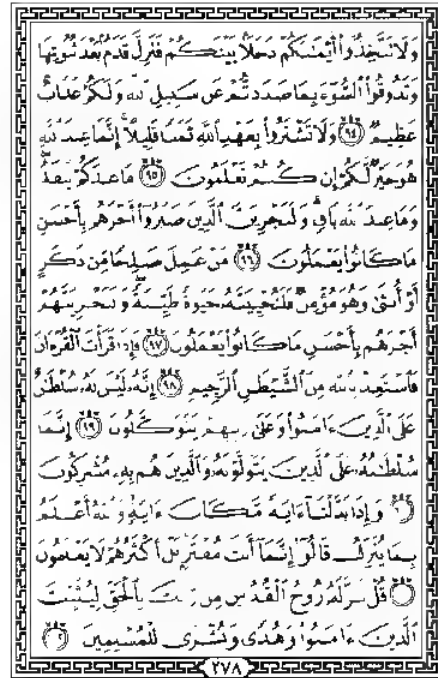 وَلَا تَتَّخِذُوٓا۟ أَيْمَٰنَكُمْ دَخَلًۢا بَيْنَكُمْ فَتَزِلَّ قَدَمٌۢ بَعْدَ ثُبُوتِهَا
وَتَذُوقُوا۟ ٱلسُّوٓءَ بِمَا صَدَدتُّمْ عَن سَبِيلِ ٱللَّهِ وَلَكُمْ عَذَابٌ
عَظِيمٌ ٩٤ وَلَا تَشْتَرُوا۟ بِعَهْدِ ٱللَّهِ ثَمَنًا قَلِيلًا إِنَّمَا عِندَ ٱللَّهِ
هُوَ خَيْرٌ لَّكُمْ إِن كُنتُمْ تَعْلَمُونَ ٩٥ مَا عِندَكُمْ يَنفَدُ
وَمَا عِندَ ٱللَّهِ بَاقٍ وَلَنَجْزِيَنَّ ٱلَّذِينَ صَبَرُوٓا۟ أَجْرَهُم بِأَحْسَنِ
مَا كَانُوا۟ يَعْمَلُونَ ٩٦ مَنْ عَمِلَ صَٰلِحًا مِّن ذَكَرٍ
أَوْ أُنثَىٰ وَهُوَ مُؤْمِنٌ فَلَنُحْيِيَنَّهُۥ حَيَوٰةً طَيِّبَةً وَلَنَجْزِيَنَّهُمْ
أَجْرَهُم بِأَحْسَنِ مَا كَانُوا۟ يَعْمَلُونَ ٩٧ فَإِذَا قَرَأْتَ ٱلْقُرْءَانَ
فَٱسْتَعِذْ بِٱللَّهِ مِنَ ٱلشَّيْطَٰنِ ٱلرَّجِيمِ ٩٨ إِنَّهُۥ لَيْسَ لَهُۥ سُلْطَٰنٌ
عَلَى ٱلَّذِينَ ءَامَنُوا۟ وَعَلَىٰ رَبِّهِمْ يَتَوَكَّلُونَ ٩٩ إِنَّمَا
سُلْطَٰنُهُۥ عَلَى ٱلَّذِينَ يَتَوَلَّوْنَهُۥ وَٱلَّذِينَ هُم بِهِۦ مُشْرِكُونَ
وَإِذَا بَدَّلْنَآ ءَايَةً مَّكَانَ ءَايَةٍ وَٱللَّهُ أَعْلَمُ
بِمَا يُنَزِّلُ قَالُوٓا۟ إِنَّمَآ أَنتَ مُفْتَرٍۭ بَلْ أَكْثَرُهُمْ لَا يَعْلَمُونَ
قُلْ نَزَّلَهُۥ رُوحُ ٱلْقُدُسِ مِن رَّبِّكَ بِٱلْحَقِّ لِيُثَبِّتَ
ٱلَّذِينَ ءَامَنُوا۟ وَهُدًى وَبُشْرَىٰ لِلْمُسْلِمِينَ
٢٧٨